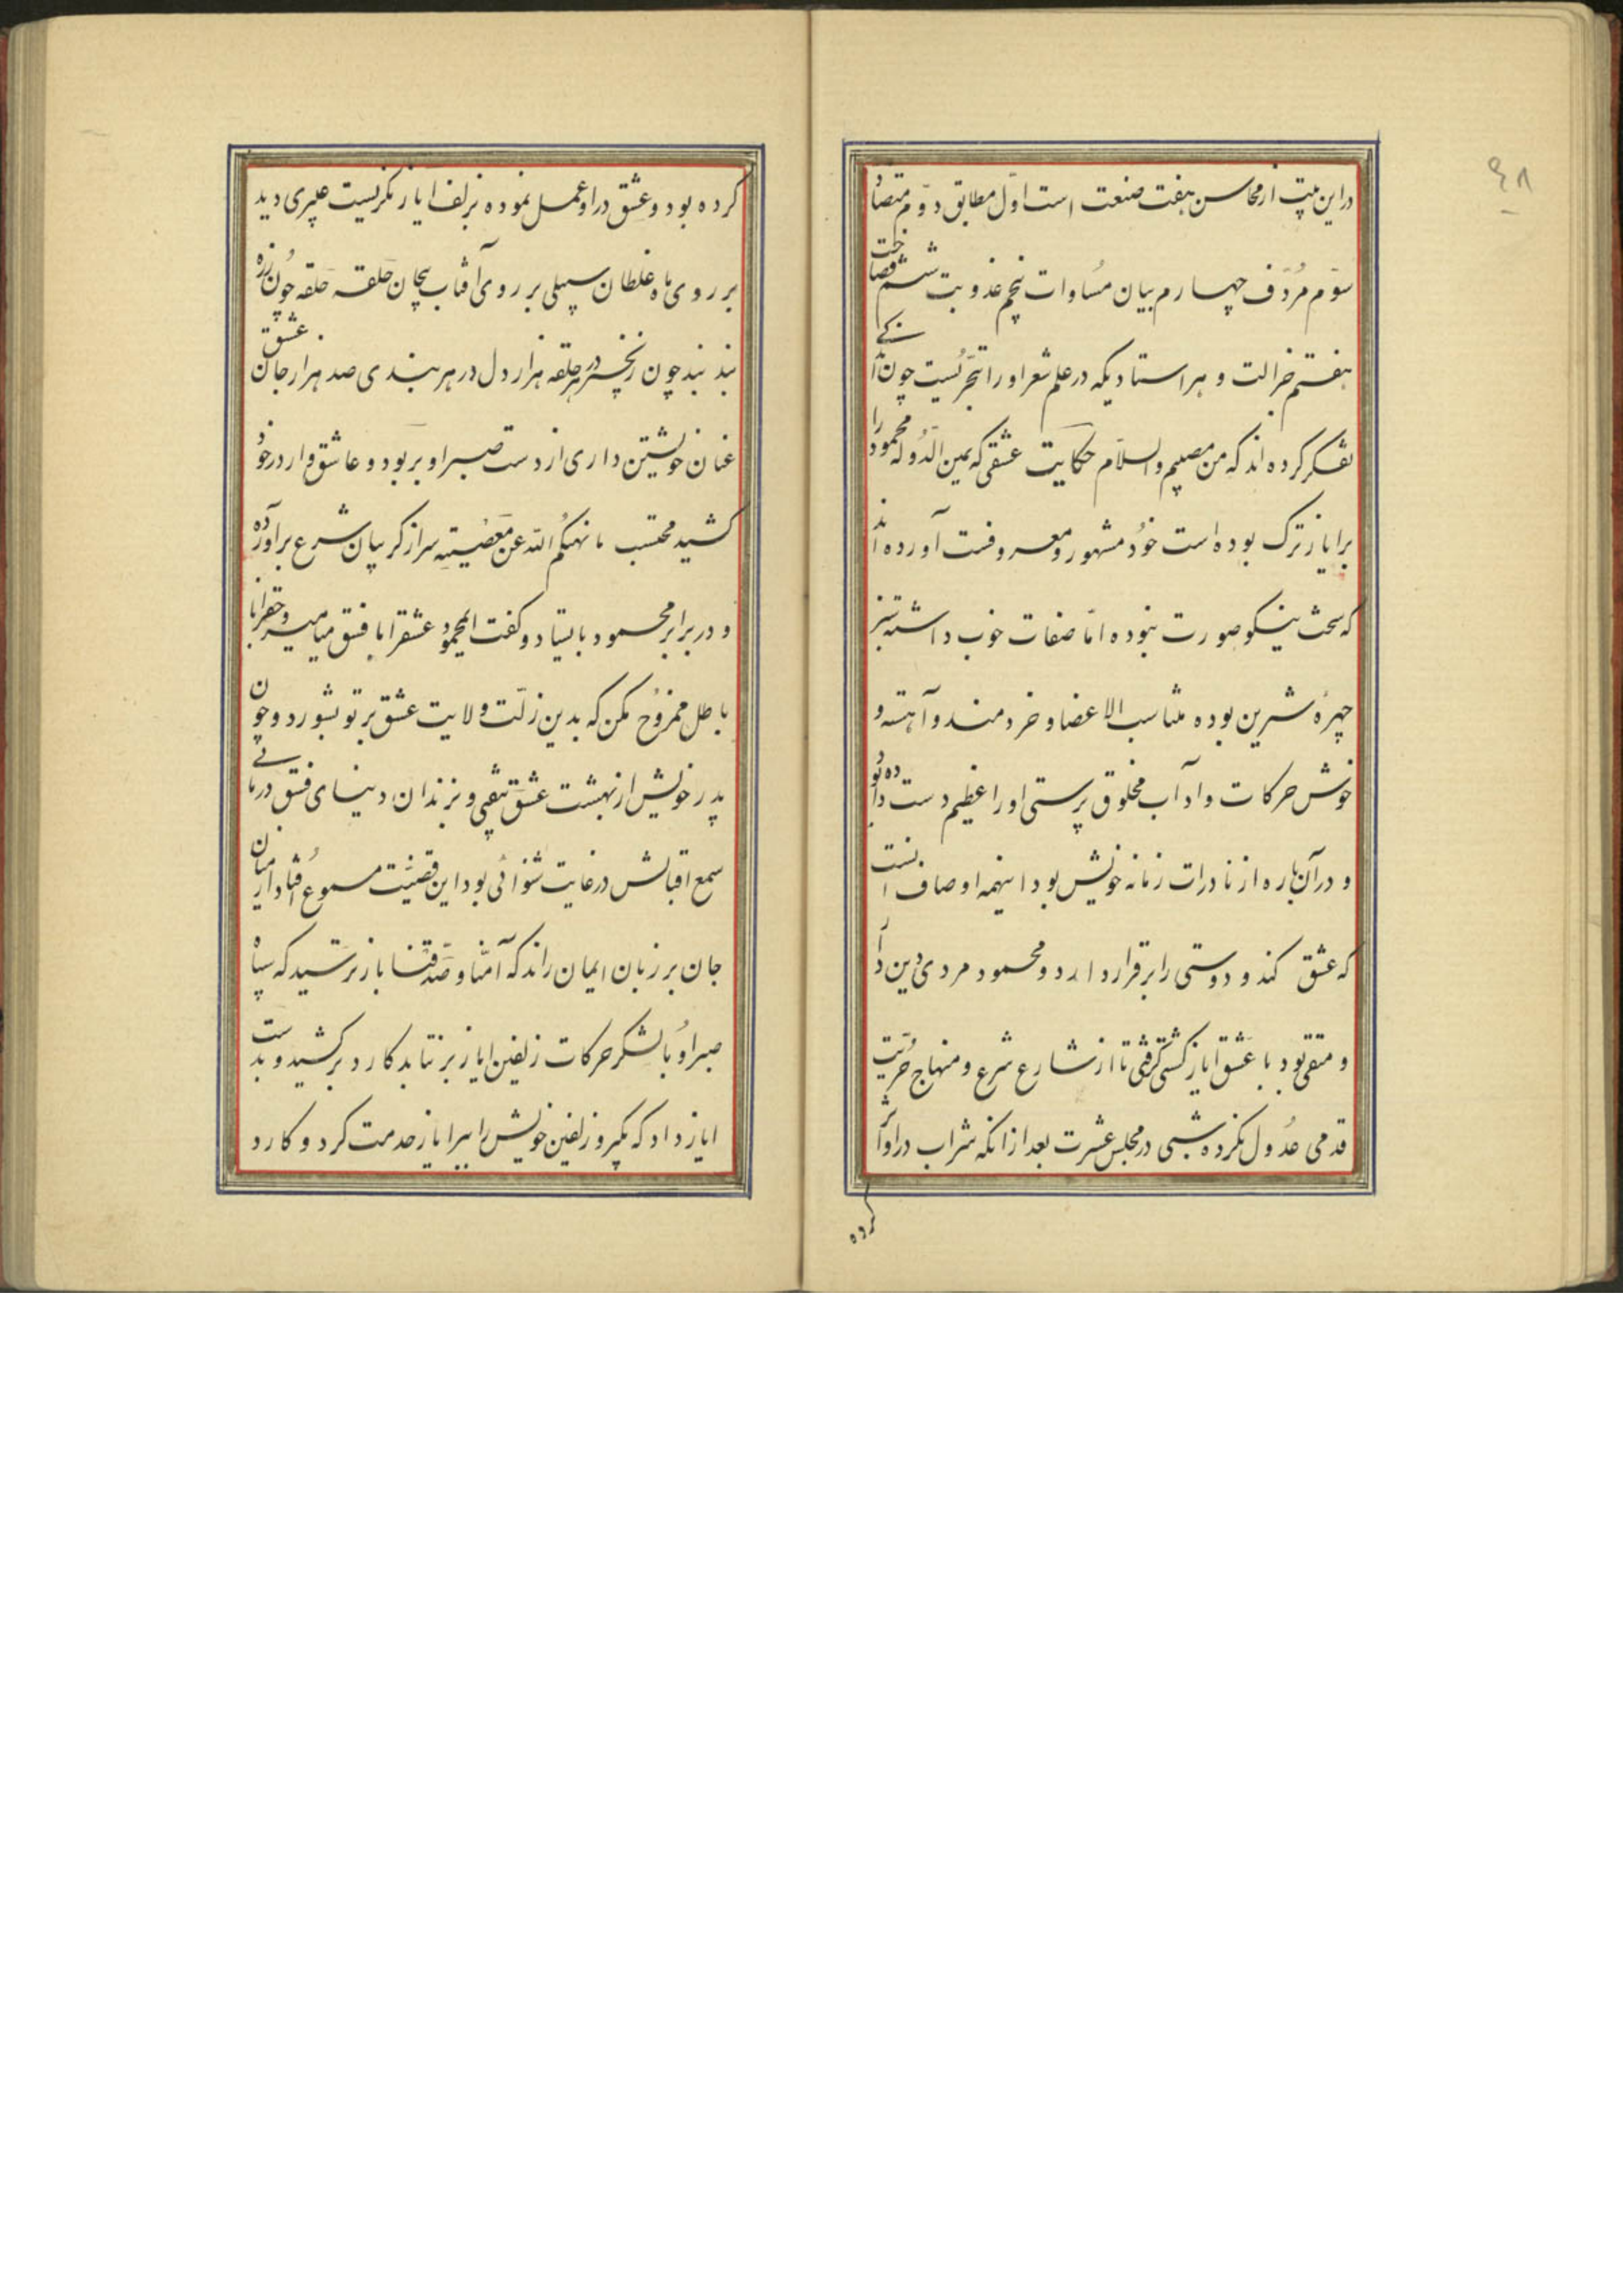 ۴۸
در این بیت از محاسن هفت صنعت است اوّل مطابق دوّم متضاد
سوّم مُردّف چهارم بیان مُساوات پنجم عذوبت ششم فصاحت
هفتم جزالت و هر استادیکه در علم شعر اورا تبحّریست چون اندکی
تفکر کرده اند که من مصیبم والسلّام حکایت عشقی که یمین الدّوله محمود را
بر ایاز ترک بوده است خود مشهور و معروفست آورده اند
که سخت نیکو صورت نبوده امّا صفات خوب داشته سبز
چهرهٔ شیرین بوده متناسب الاعضا و خردمند و آهسته و
خوش حرکات و آداب مخلوق پرستی اورا عظیم دست داده بود
و در آن باره از نادرات زمانه خویش بود اینهمه اوصاف آنست
که عشق کند و دوستی را برقرار دارد و محمود مردی دین دار
و متقی بود با عشق ایاز کشتی گرفتی تا از شارع شرع و منهاج حرّیت
قدمی عدُول نکرده شبی در مجلس عشرت بعد از انکه شراب در او اثر
کرده
کرده بود و عشق در او عمل نموده بزلف ایاز نگریست عنبری دید
بر روی ماه غلطان سنبلی بر روی آفتاب پیچان حَلقه حَلقه چوُن زره
بند بند چون زنجیر در هر حلقه هزار دل در هر بندی صد هزار جان عشق
عنان خویشتن داری از دست صبر او بربود و عاشق وار در خود
کشید محتسب ما نهیکُم الله عن معَصیَتِه سر از گریبان شرع برآورده
و در برابر محمود بایستاد و گفت ایمحمود عشقرا با فسق میامیز و حقرا با
باطل ممزوُح مکن که بدین زلّت ولایت عشق بر تو بشورد و چون
پدر خویش از بهشت عشق بیفتی و بزندان دنیای فسق درمانی
سمع اقبالش در غایت شنوائی بود این قضیّت مسموع اُفتاد از میان
جان بر زبان ایمان راند که آمنّا و صَدّقنا باز ترسید که سپاه
صبر اوُ با لشکر حرکات زلفین ایاز بر نتابد کارد برکشید و بدست
ایاز داد که بگیر و زلفین خویش را ببر ایاز خدمت کرد و کارد